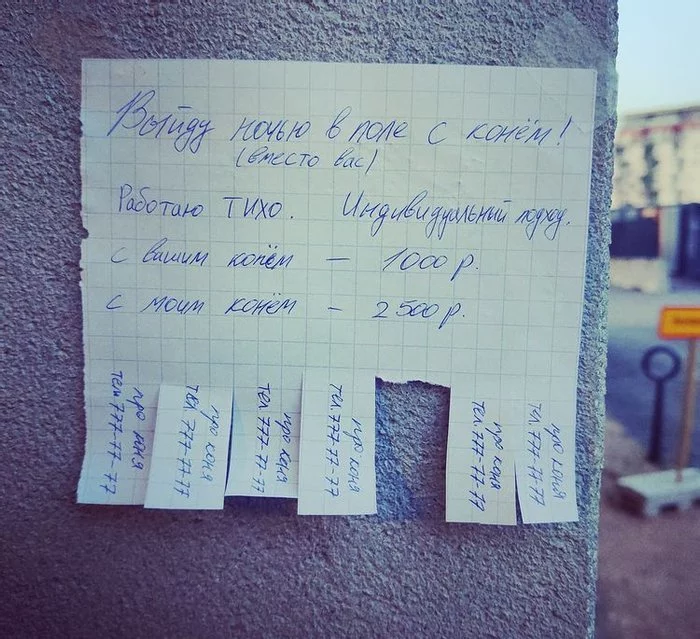 Выйду ночью в поле с конём!
(вместо вас)
Работаю ТИХО. Индивидуальный подход.
с вашим конём — 1000 р.
с моим конём — 2500 р.
про коня
тел 777-77-77
про коня
тел 777-77-77
про коня
тел 777-77-77
про коня
тел 777-77-77
про коня
тел 777-77-77
про коня
тел 777-77-77